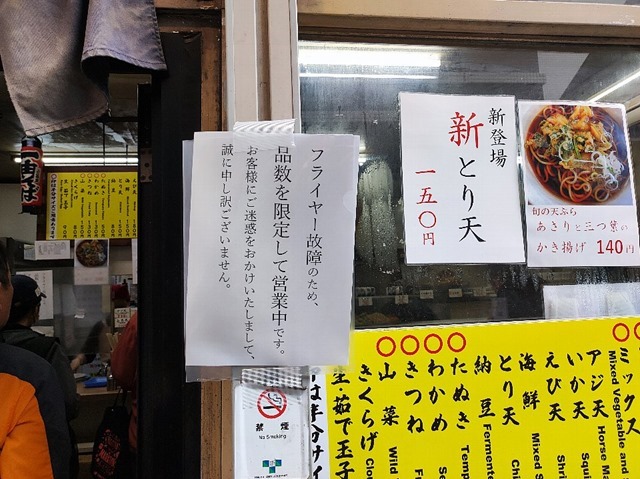 フライヤー故障のため、
品数を限定して営業中です。
お客様にご迷惑をおかけいたしまして、
誠に申し訳ございません。
新登場
新とり天
一五〇円
旬の天ぷら
あさりと三つ葉の
かき揚げ 140円
禁煙
No Smoking
ミックス
Mixed Vegetable and
アジ天
Horse Ma
いか天
Squi
えび天
Shri
海鮮
Mixed S
とり天
Chi
納豆
Fermente
たぬき
Temp
わかめ
Se
きつね
Fr
山菜
Wild
きくらげ
Clou
生・茹で玉子
は半分サイ